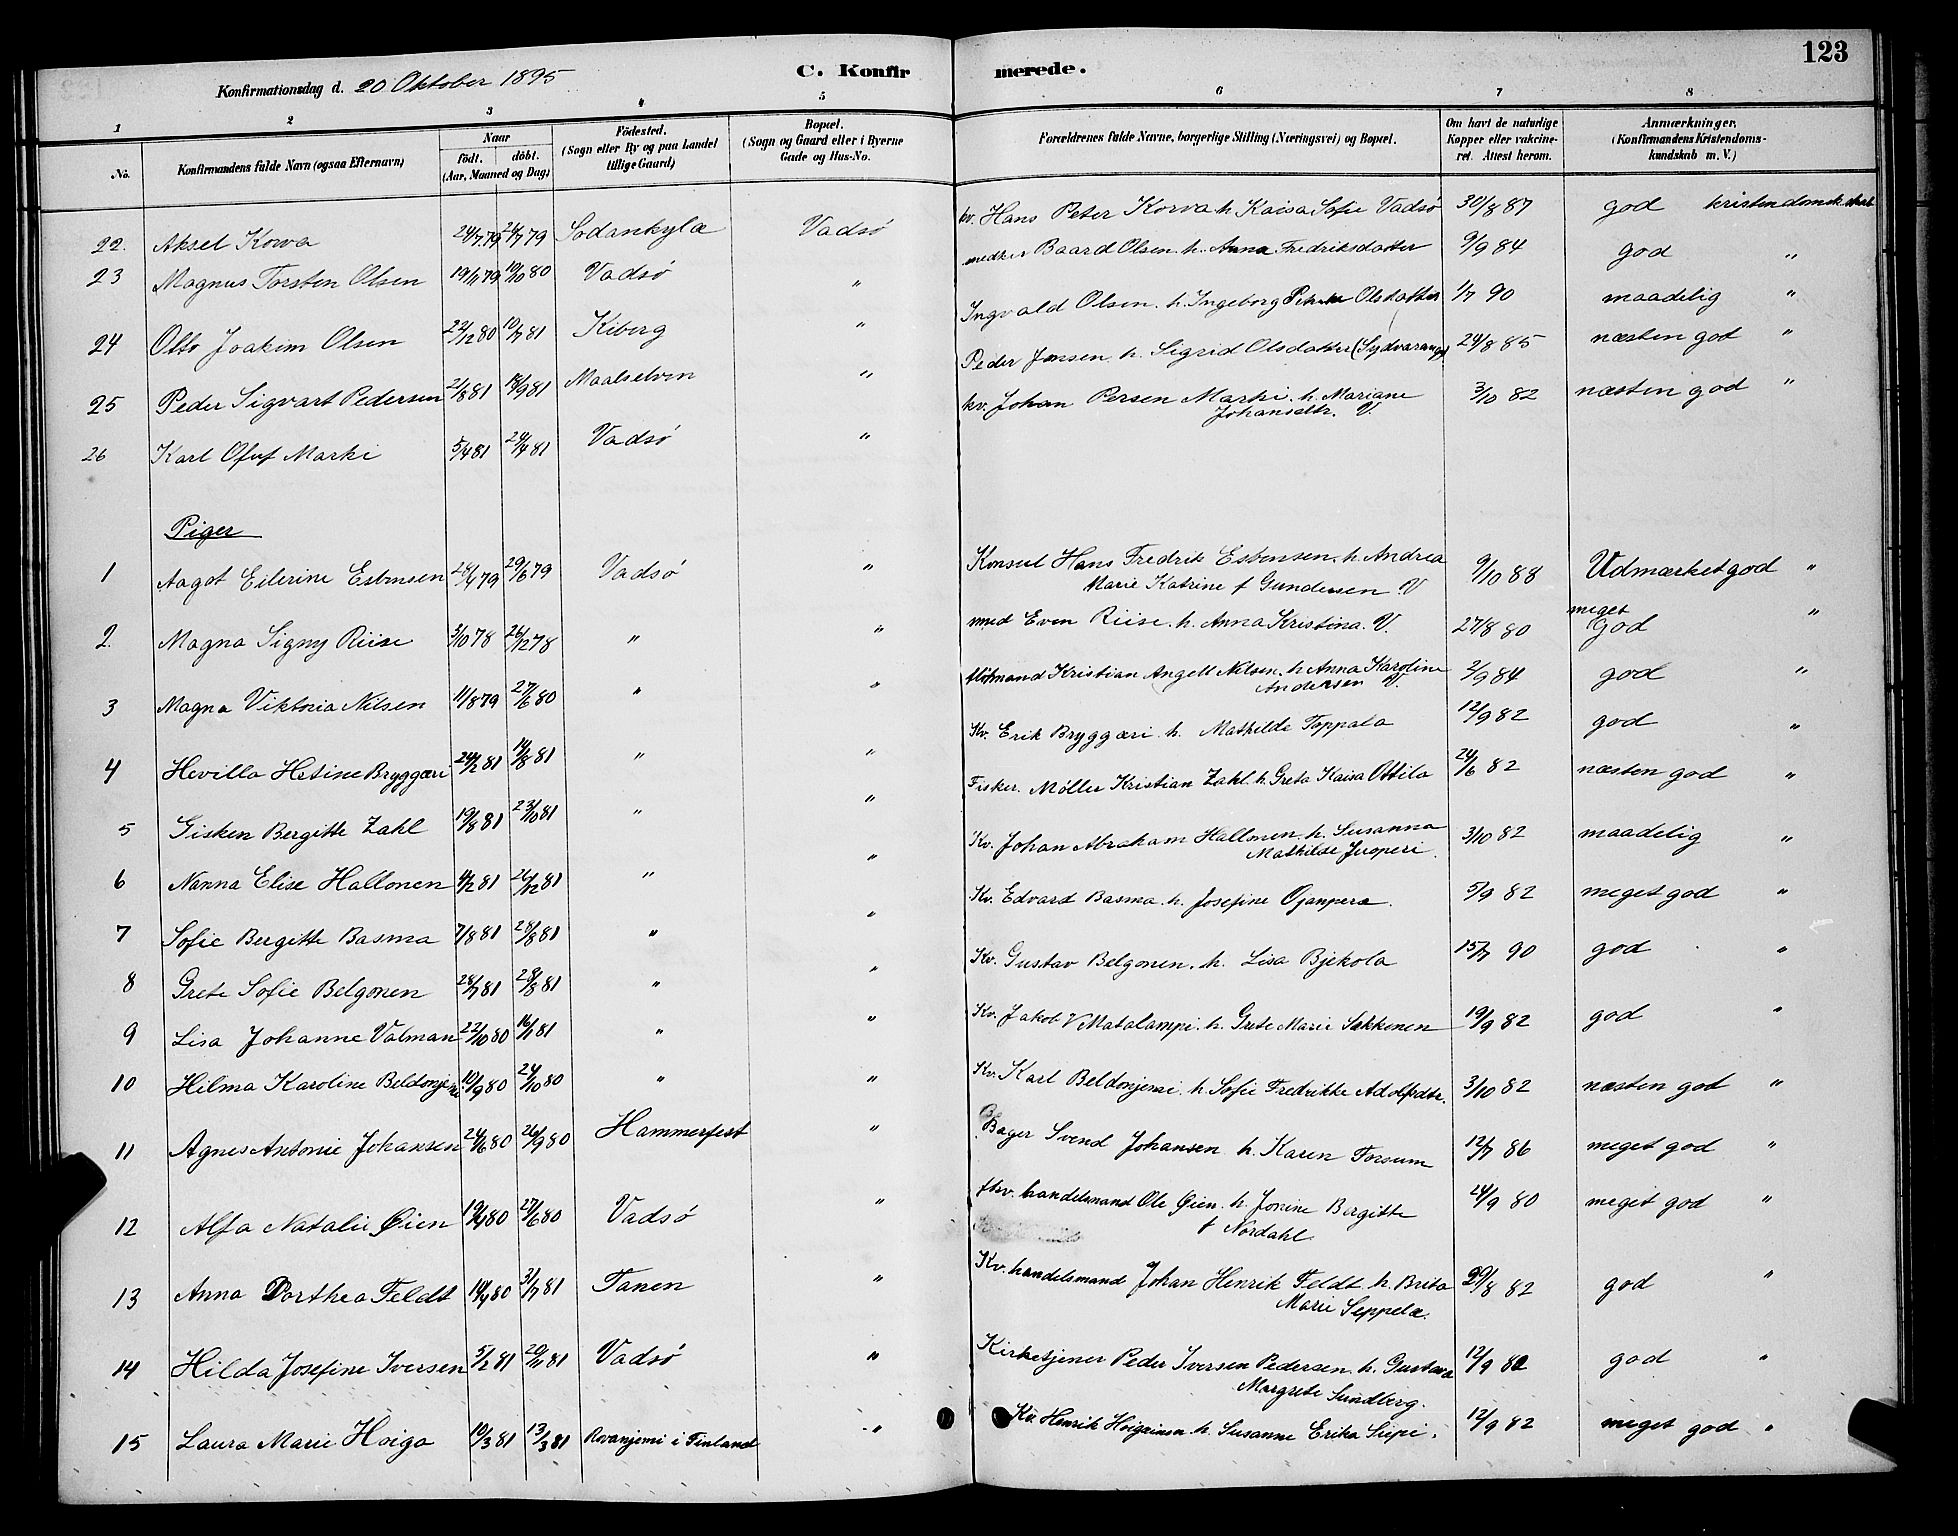 123
Konfirmationsdag d. 20 Oktober 1895 C. Konfirmerede.
1 2 3 4 5 6 7 8
No. Konfirmandens fulde Navn (ogsaa Efternavn) Naar födt. döbt. (Aar, Maaned og Dag) Födested. (Sogn eller By og paa Landet tillige Gaard) Bopæl. (Sogn og Gaard eller i Byerne Gade og Hus-No. Forældrenes fulde Navne, borgerlige Stilling (Næringsvei) og Bopæl. Om havt de naturlige Kopper eller vakcineret. Attest herom. Anmærkninger. (Konfirmandens Kristendomskundskab m. V.)
22. Aksel Korva 24/7 79 26/7 79 Sodankylæ Vadsø kv. Hans Peter Korva h. Kaisa Sofie Vadsø 30/8 87 god kristendomsk.
23 Magnus Torsten Olsen 19/11 79 19/10 80 Vadsø " Baard Olsen h. Anna Fredriksdatter 9/9 84 god "
24 Otto Joakim Olsen 22/12 80 10/7 81 Kiberg " Ingvald Olsen. h. Ingeborg Olsdatter 1/7 90 maadelig "
25 Peder Sigvart Pedersen 21/8 81 18/9 81 Maalselven " Peder Jensen h. Sigrid Olsdatter (Sydvaranger) 24/8 85 næsten god "
26 Karl Oluf Marki 5/4 81 24/4 81 Vadsø " kv. Johan Persen Marki. h. Mariane Johansdtr. V 3/10 82 næsten god "
Piger
1 Aagot Eilerine Esbensen 28/4 79 29/6 79 Vadsø " Konsul Hans Fredrik Esbensen. h. Andrea
Marie Katrine f Gundersen V 9/10 88 Udmærket god "
2. Magna Signy Riise 3/10 78 26/12 78 " " Even Riise. h. Anna Kristina. V. 27/8 80 meget God "
3 Magna Viktoria Nilsen 11/8 79 27/6 80 " " Kristian Angell Nilsen. h. Anna Karoline
Andersen V. 2/9 84 god "
4 Hevilla Hetine Bryggæri 24/2 81 14/8 81 " " Kv. Erik Bryggæri. h. Mathilde Toppala 12/9 82 god "
5 Gisken Bergitte Zahl 19/8 81 23/10 81 " " Fisker. Møller Kristian Zahl. h. Greta Kaisa Ottila 24/6 82 næsten god "
6 Nanna Elise Hallonen 4/2 81 26/12 81 " " Kv. Johan Abraham Hallonen. h. Susanna
Mathilde Juoperi. 3/10 82 maadelig "
7 Sofie Bergitte Basma 7/8 81 28/8 81 " " Kv. Edvard Basma. h. Josefine Ojanpera. 5/9 82 meget god "
8 Grete Sofie Belgonen 24/7 81 28/8 81 " " Kv. Gustav Belgonen. h. Lisa Bjekola 15/7 90 god "
9 Lisa Johanne Valman 22/10 80 16/1 81 " " Kv. Jakob V Matalampi. h. Grete Marie Sakkinen 19/9 82 god "
10 Hilma Karoline Beldonjemi 19/9 80 24/10 80 " " Kv. Karl Beldonjemi. h. Sofie Fredrikke Adolfsdtr. 3/10 82 næsten god "
11 Agnes Antonie Johansen 24/6 80 26/9 80 Hammerfest " Bager Svend Johansen h. Karen Forsum 12/7 86 meget god "
12 Alfa Natalie Øien 19/4 80 27/6 80 Vadsø " fhv. handelsmand Ole Øien. h. Jonine Bergitte
f Nordahl 24/9 80 meget god "
13 Anna Dorthea Feldt 14/9 80 31/7 81 Tanen " Kv. handelsmand Johan Henrik Feldt h. Brita
Marie Seppelæ. 29/8 82 god "
14 Hilda Josefine Iversen 5/2 81 20/11 81 Vadsø " Kirketjener Peder Iversen Pedersen. h. Gustava
Margrete Sundberg. 12/9 82 god "
15 Laura Marie Hoiga 10/3 81 13/3 81 Rovanjemi i Finland " Kv Henrik Hoigainen h. Susanne Erika Siipi. 12/9 82 meget god "